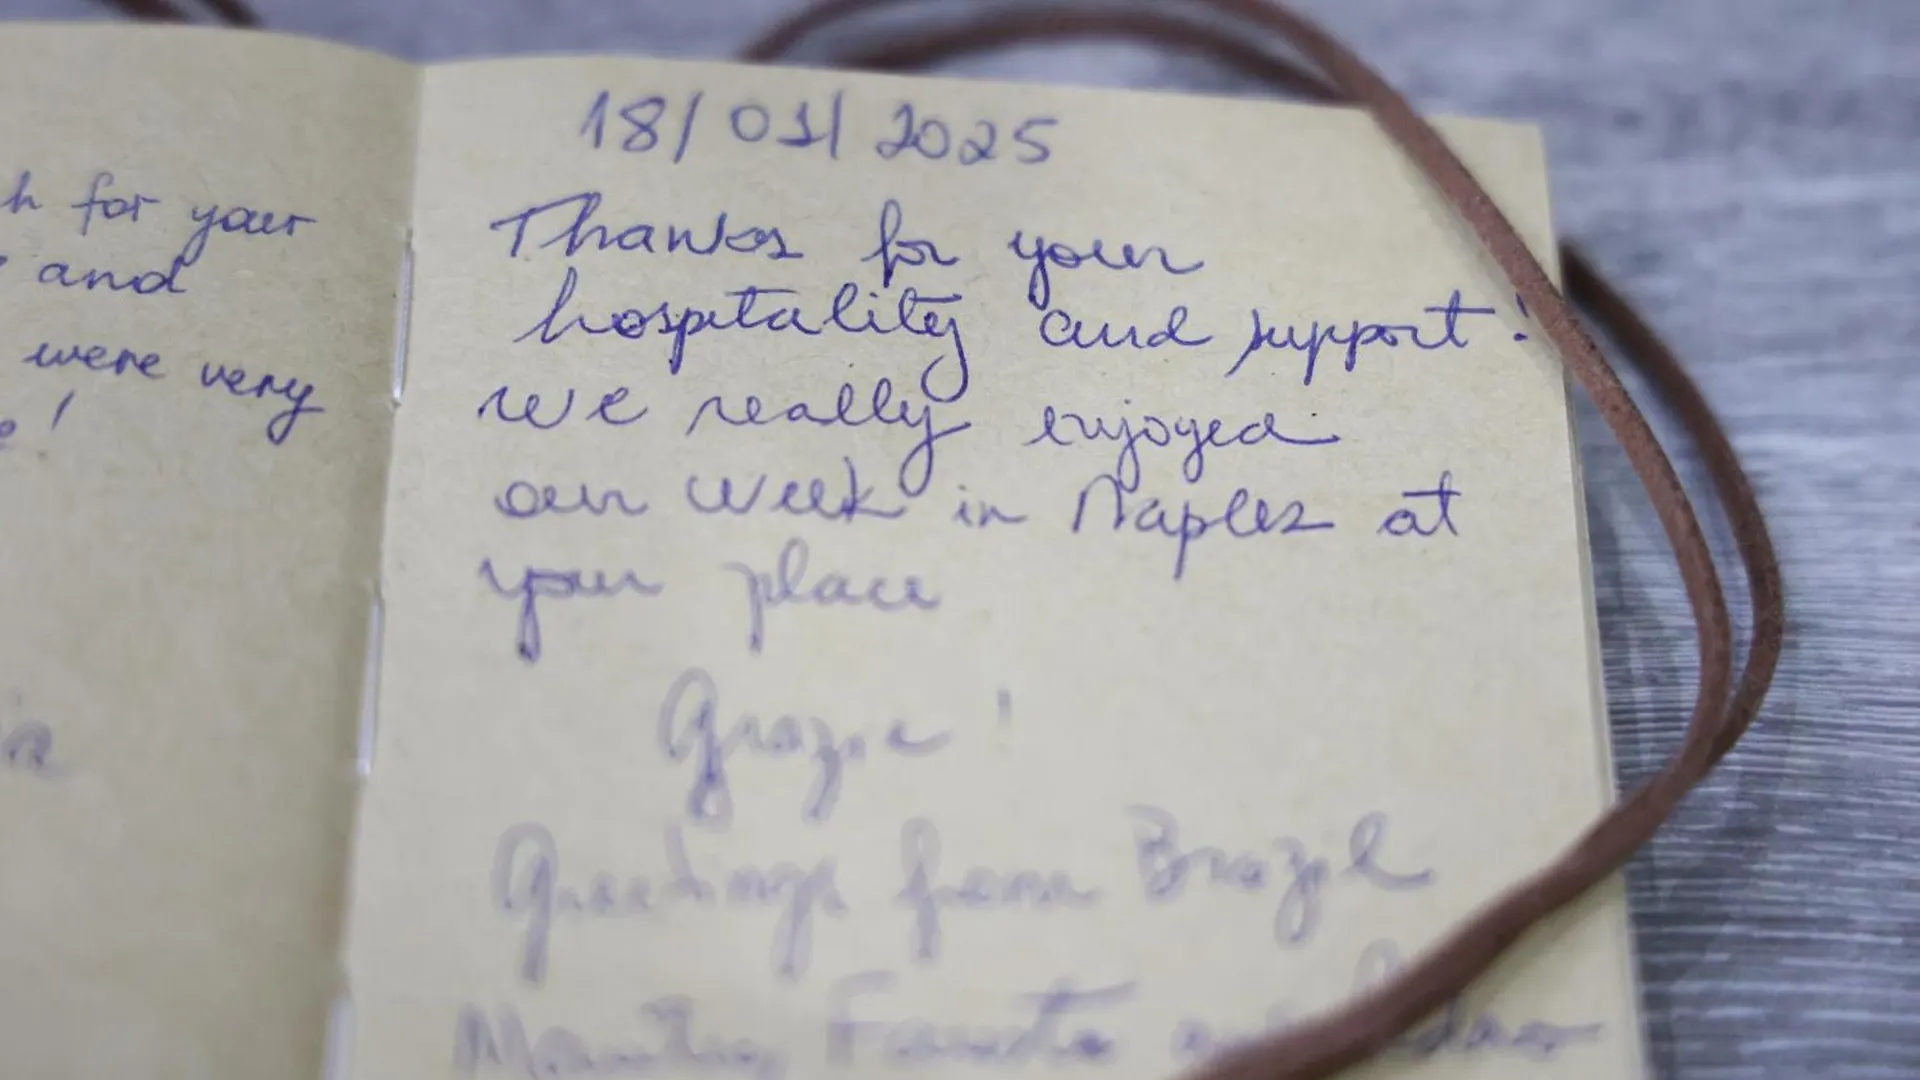 h for your
and
were very
!
18/01/2025
Thanks for your
hospitality and support!
we really enjoyed
our week in Naples at
your place
Grazie!
Greetings from Brazil
Fausto